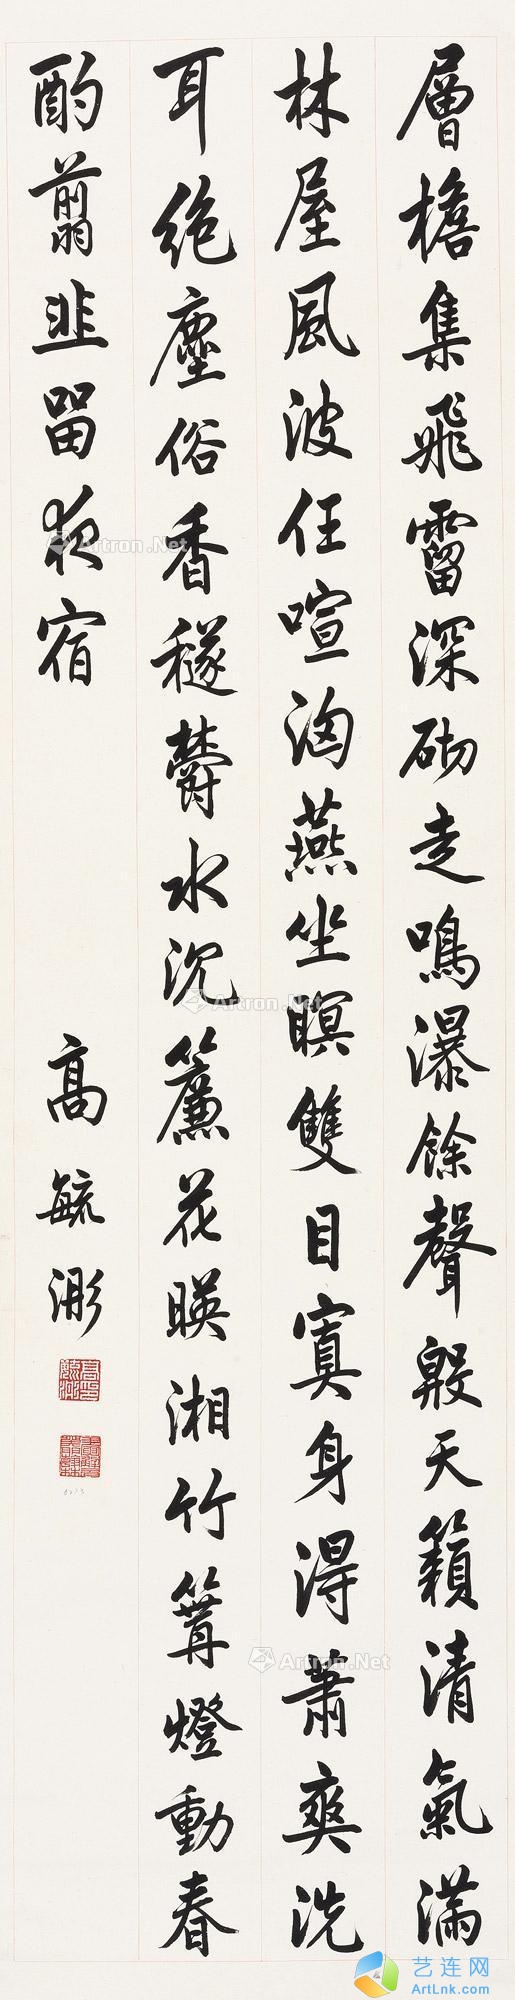 層檐集飛霤深砌走鳴瀑餘聲殷天籟清氣滿
林屋風波任喧洶燕坐瞑雙目寘身得蕭爽洗
耳絶塵俗香穟欝水沉簾花暎湘竹篝燈動春
酌翦韭留夜宿
高毓浵
Artron.Net
Artron.Net
Artron.Net
Artron.Net
艺连网
ArtLnk.com